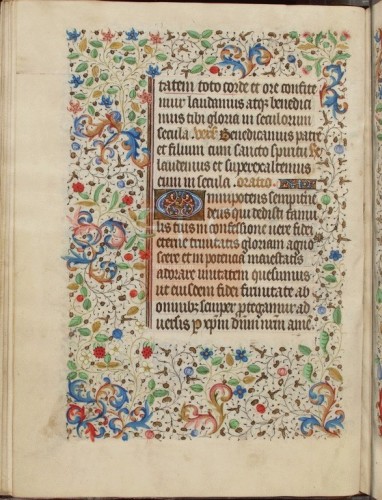 tatem toto corde et ore confite
mur laudamus atq; benedici
mus tibi gloria in seculorum
secula. Benedicamus patrē
et filium cum sancto spiritu
laudemus et superexaltemus
eum in secula. oratio.
Omnipotens sempiterne
deus qui dedisti famu
lis tuis in confessione uere fidei
eterne trinitatis gloriam agnos
cere et in potencia maiestatis
adorare unitatem quesumus
ut eiusdem fidei firmitate ab
omnibꝫ semper protegamur ad
uersis p xpm dnm nrm amē